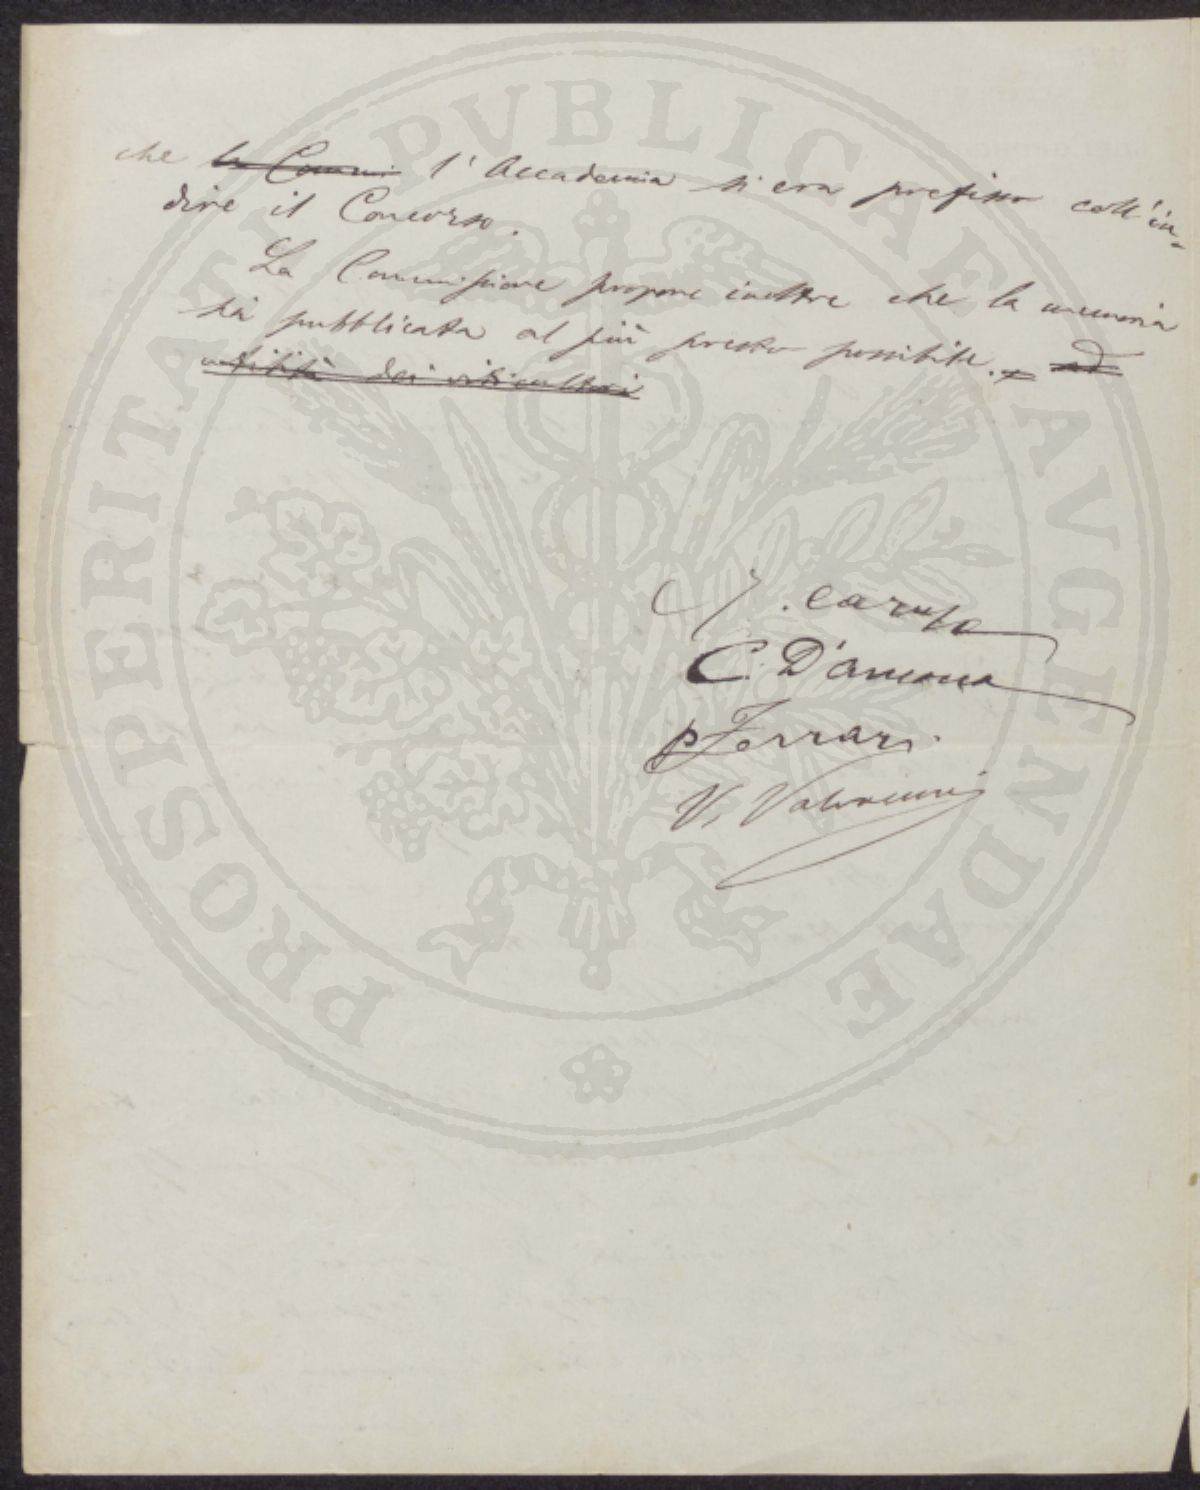 che la Commi l'Accademia si era prefisso coll'in-
dire il Concorso.
La Commissione propone inoltre che la memoria
sia pubblicata al più presto possibile. ad
utilità dei viticultori
. Caruso
C. D'Ancona
P Ferrari
V. Valvassori
PROSPERITATI PVBLICAE AVGENDAE